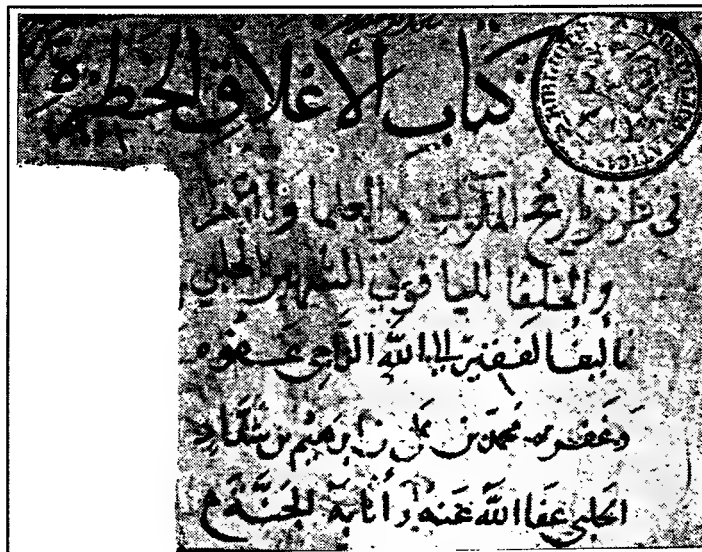 كتاب الأغلاق الخطيرة
في تواريخ الملوك والعلما والأمرا
والخلفا للياقوتي الشهير الحلبي
تأليف الفقير إلى الله الراجي عفوه
وغفره محمد بن علي بن إبرهيم بن شداد
الحلبي عفا الله عنه وأثابه الجنة